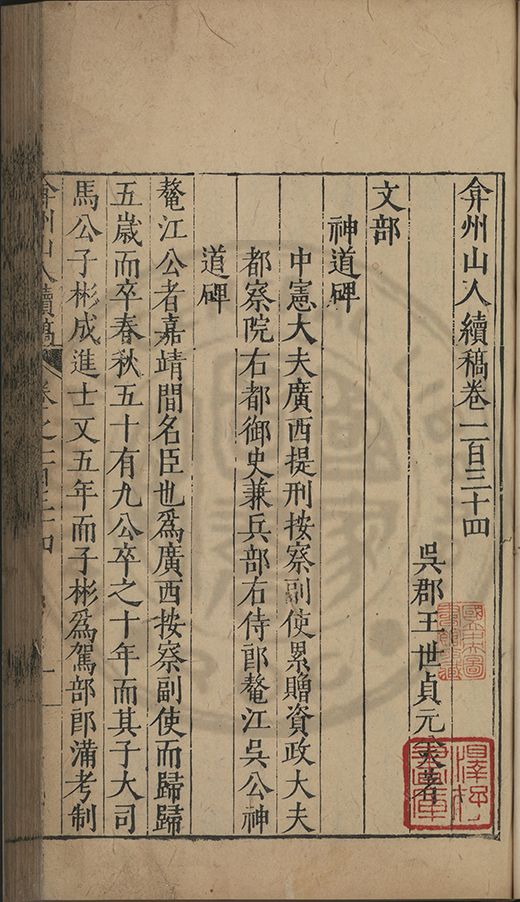 弇州山人續稿卷一百三十四
吳郡王世貞元美著
文部
神道碑
中憲大夫廣西提刑按察副使累贈資政大夫
都察院右都御史兼兵部右侍郎鰲江吳公神
道碑
鰲江公者嘉靖間名臣也爲廣西按察副使而歸歸
五歲而卒春秋五十有九公卒之十年而其子大司
馬公子彬成進士又五年而子彬爲駕部郎滿考制
弇州山人續稿
卷之一百三十四
一
國立中央圖書館收藏